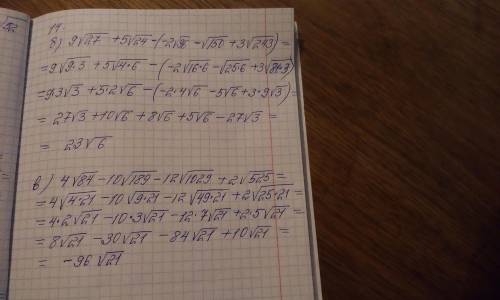 14.
б) 9√27 + 5√24 - (-2√96 - √150 + 3√243) =
= 9√9·3 + 5√4·6 - (-2√16·6 - √25·6 + 3√81·3)
= 9·3√3 + 5·2√6 - (-2·4√6 - 5√6 + 3·9√3) =
= 27√3 + 10√6 + 8√6 + 5√6 - 27√3 =
= 23√6
в) 4√84 - 10√189 - 12√1029 + 2√525 =
= 4√4·21 - 10√9·21 - 12√49·21 + 2√25·21 =
= 4·2√21 - 10·3√21 - 12·7√21 + 2·5√21 =
= 8√21 - 30√21 - 84√21 + 10√21 =
= -96√21